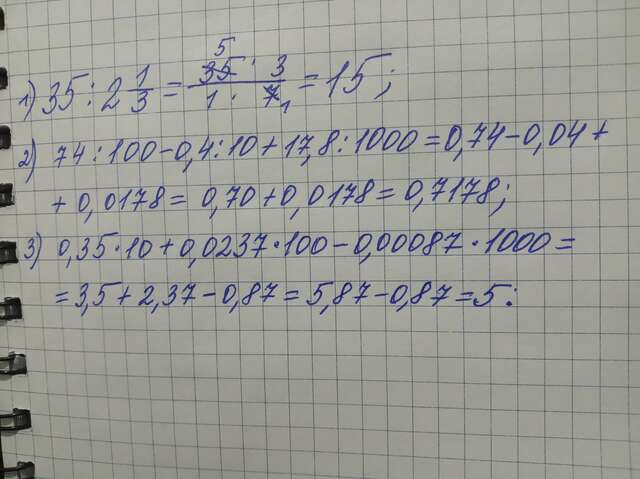 1) 35 : 2 1/3 = (5 35 · 3)/(1 · 7 1) = 15;
2) 74 : 100 - 0,4 : 10 + 17,8 : 1000 = 0,74 - 0,04 +
+ 0,0178 = 0,70 + 0,0178 = 0,7178;
3) 0,35 · 10 + 0,0237 · 100 - 0,00087 · 1000 =
= 3,5 + 2,37 - 0,87 = 5,87 - 0,87 = 5: